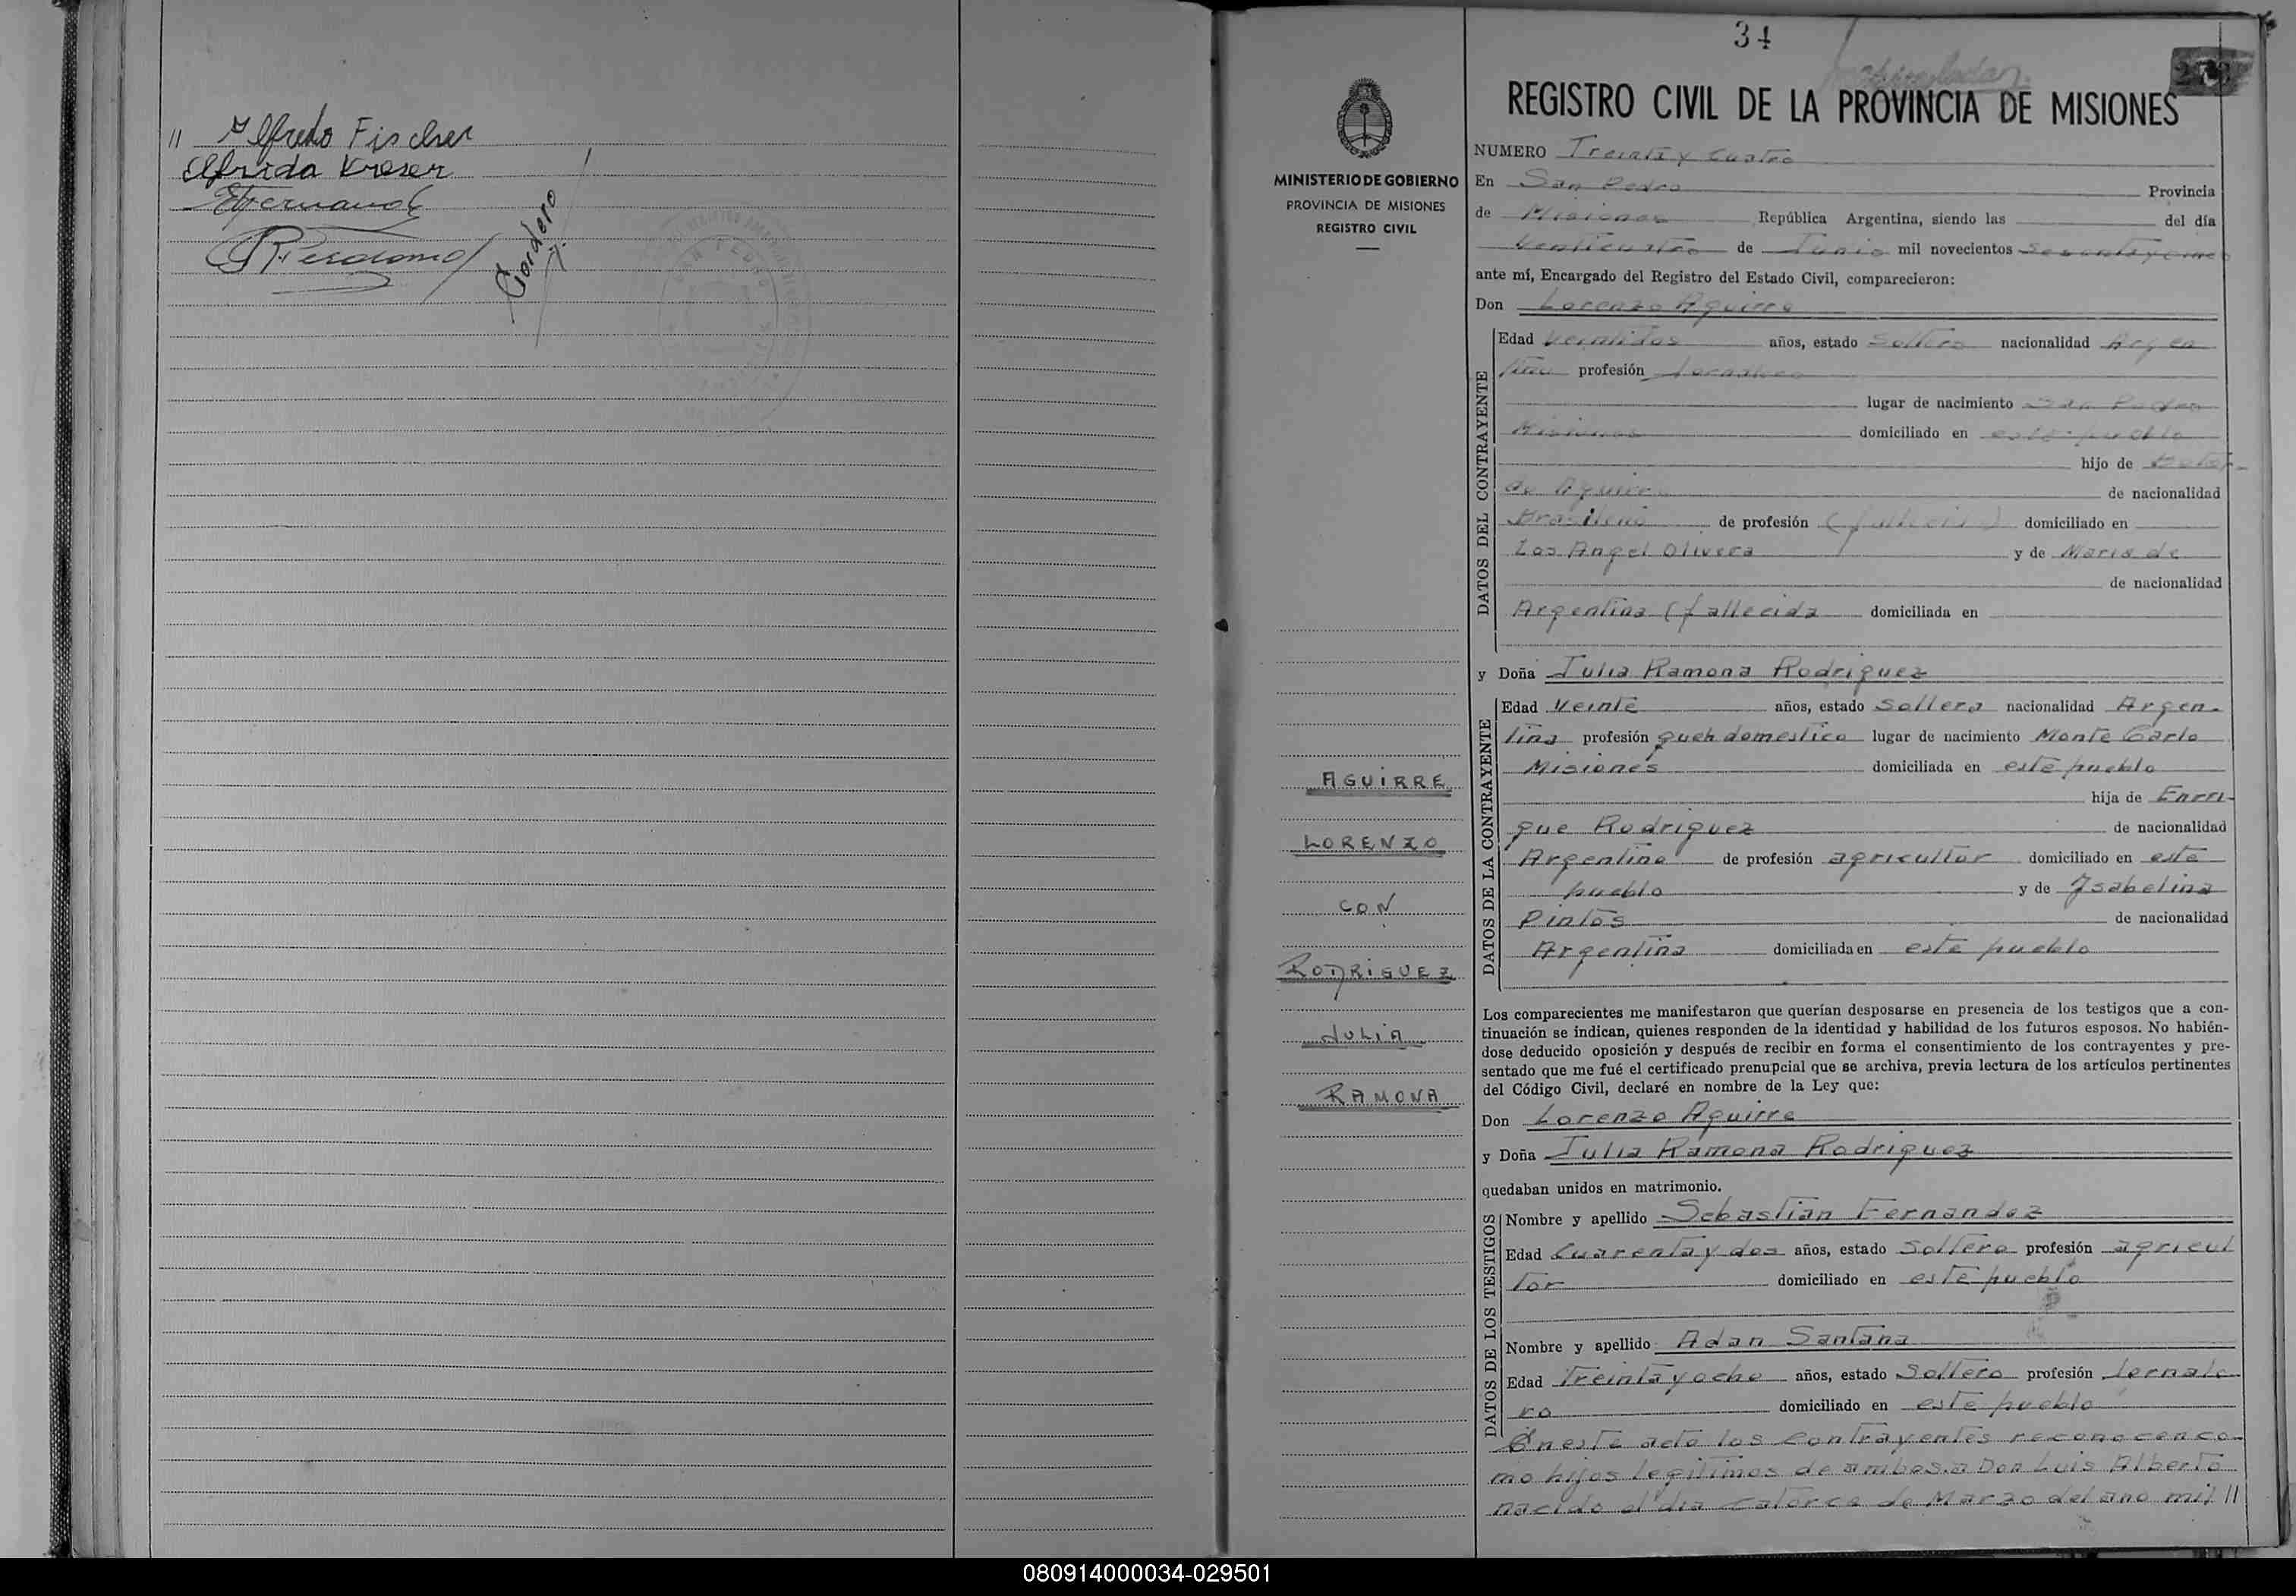 " Alfredo Fischer
Elfrida Kreser
SFernandez
Cordero
34
REGISTRO CIVIL DE LA PROVINCIA DE MISIONES
MINISTERIO DE GOBIERNO
PROVINCIA DE MISIONES
REGISTRO CIVIL
NUMERO Treinta y Cuatro
En San Pedro Provincia
de Misiones República Argentina, siendo las del día
Venticuatro de Junio mil novecientos sesentaycinco
ante mí, Encargado del Registro del Estado Civil, comparecieron:
Don Lorenzo Aguirre
DATOS DEL CONTRAYENTE
Edad Veintidos años, estado Soltero nacionalidad Argen
tina profesión Jornalero
lugar de nacimiento San Pedro
Misiones domiciliado en este pueblo
hijo de
de Aguirre de nacionalidad
Brasileño de profesión (fallecido) domiciliado en
Los Angel Olivera y de Maria de
de nacionalidad
Argentina (fallecida domiciliada en
y Doña Julia Ramona Rodriguez
DATOS DE LA CONTRAYENTE
Edad Veinte años, estado Soltera nacionalidad Argen-
tina profesión queh domestico lugar de nacimiento Monte Carlo
Misiones domiciliada en este pueblo
hija de Enrri-
que Rodriguez de nacionalidad
Argentino de profesión agricultor domiciliado en este
pueblo y de Ysabelina
Pintos de nacionalidad
Argentina domiciliada en este pueblo
AGUIRRE
LORENZO
CON
RODRIGUEZ
JULIA
RAMONA
Los comparecientes me manifestaron que querían desposarse en presencia de los testigos que a con-
tinuación se indican, quienes responden de la identidad y habilidad de los futuros esposos. No habién-
dose deducido oposición y después de recibir en forma el consentimiento de los contrayentes y pre-
sentado que me fué el certificado prenupcial que se archiva, previa lectura de los artículos pertinentes
del Código Civil, declaré en nombre de la Ley que:
Don Lorenzo Aguirre
y Doña Julia Ramona Rodriguez
quedaban unidos en matrimonio.
DATOS DE LOS TESTIGOS
Nombre y apellido Sebastian Fernandez
Edad Cuarenta y dos años, estado Soltero profesión agricul
tor domiciliado en este pueblo
Nombre y apellido Adan Santana
Edad Treinta y ocho años, estado Soltero profesión Jornale-
ro domiciliado en este pueblo
En este acto los Contrayentes reconocen co-
mo hijos legitimos de ambos.a Don Luis Alberto
nacido el dia catorce de Marzo del ano mil "
080914000034-029501